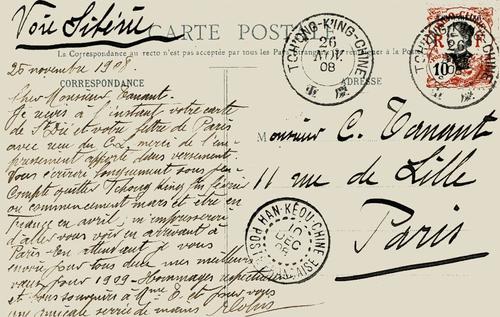 Voie Sibérie
CARTE POSTALE
La Correspondance au recto n'est pas acceptée par tous les Pays Etrangers
CORRESPONDANCE
ADRESSE
25 novembre 1908
Cher Monsieur Ternant.
Je reçois à l'instant votre carte
de et votre lettre de Paris
avec vue du merci de l'em-
pressement apporté dans versement.
Vous écrirai longuement sous peu.
Compte quitter Tchong King fin février
ou commencement mars et être en
France en avril, m'empresserai
d'aller vous voir en arrivant à
Paris. En attendant je vous
envoie pour tous deux mes meilleurs
vœux pour 1909. Hommages respectueux
et bons souvenirs à Mme T. et pour vous
une amicale serrée de mains
TCHONG-K'ING-CHINE
26
NOV.
08
TCHONG-K'ING-CHINE
26
R F
10
HAN-KÉOU-CHINE
POSTE FRANÇAISE
10
DEC
Monsieur C. Ternant
11 rue de Lille
Paris